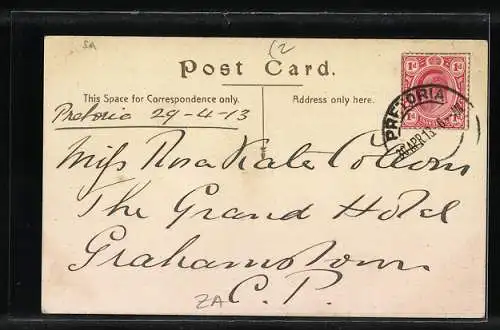 SA
(2
Post Card.
This Space for Correspondence only.
Address only here.
1d 1d
PRETORIA
APR 13
Pretoria 29-4-13
Miss Rosa Kate
The Grand Hotel
Grahamstown
C.P.
ZA